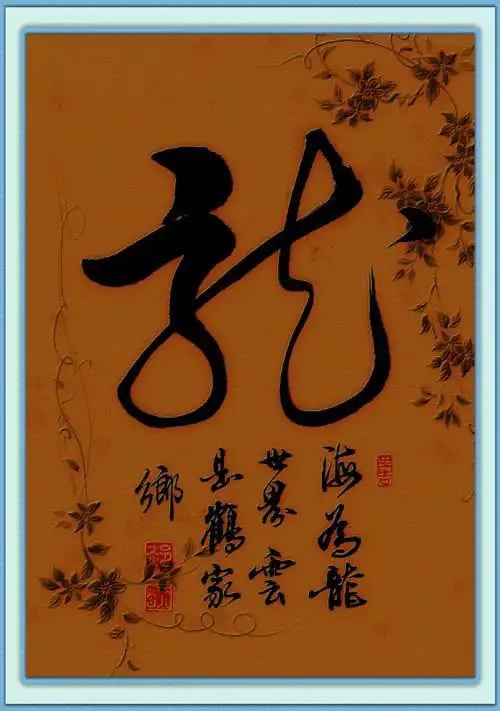 龍
海為龍
世界雲
是鶴家
鄉